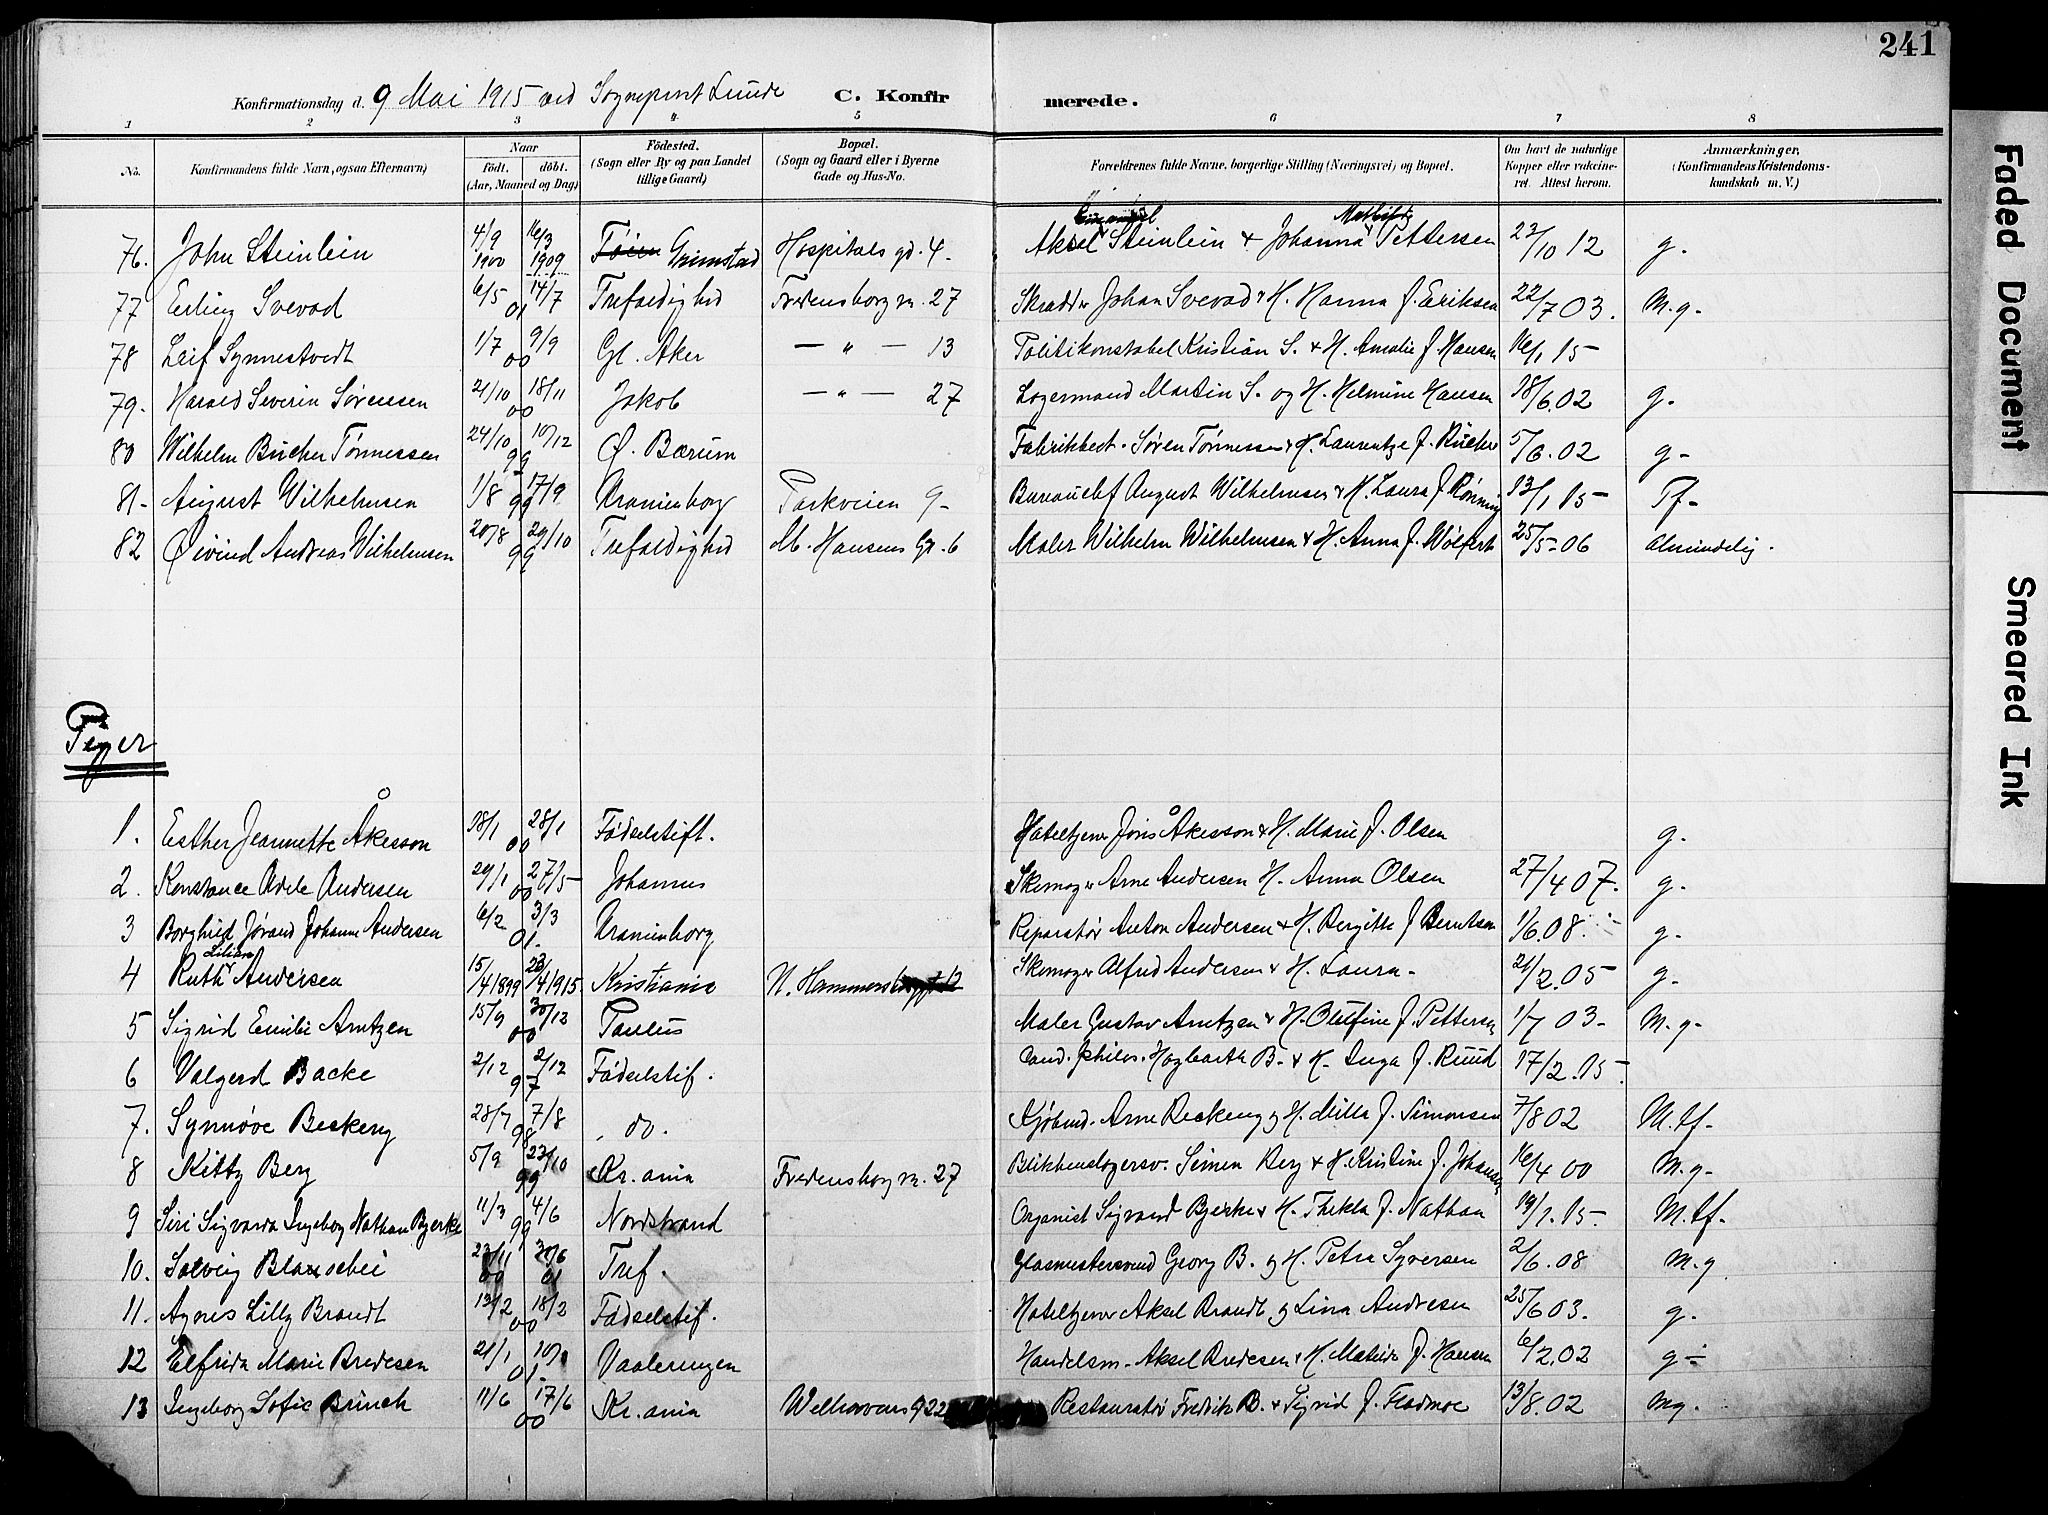 241
Konfirmationsdag d. 9 Mai 1915 ved Sogneprest Lunde C. Konfirmerede.
1 2 3 4 5 6 7 8
No. Konfirmandens fulde Navn, ogsaa Efternavn) Naar født. døbt. (Aar, Maaned og Dag) Fødested. (Sogn eller By og paa Landet tillige Gaard) Bopæl. (Sogn og Gaard eller i Byerne Gade og Hus-No. Forældrenes fulde Navne, borgerlige Stilling (Næringsvei) og Bopæl. Om havt de naturlige Kopper eller vakcineret. Attest herom. Anmærkninger, (Konfirmandens Kristendomskundskab m. V.)
76. John Steinlein 4/9 1900 16/3 1909 Tøien Grimstad Hospitals gd. 4. Aksel Steinlein & Johanna Mathilde Pettersen 23/10 12 g.
77 Erling Svevad 6/5 14/7 01 Trefoldighed Fredensborg v. 27 Skrædder Johan Svevad & H. Hanna f. Eriksen 22/7 03. M.g.
78 Leif Synnestvedt 1/7 9/9 00 Gl. Aker — " — 13 Politikonstabel Kristian S. & H. Amalie f. Hansen 16/1 15
79. Harald Severin Sørensen 21/10 18/11 00 Jakob — " — 27 Lagermand Martin S. og H. Helmine Hansen 18/6.02 g.
80 Wilhelm Bucher Tønnessen 24/10 10/12 99 Ø. Bærum Fabrikbest. Søren Tønnessen & H. Laurentze f. Bucher 5/6.02 g-
81- August Wilhelmsen 1/8 17/9 99 Uranienborg Parkveien 9- Bureauchef August Wilhelmsen & H. Laura f. Rønning 13/1 15- Tf-
82 Øivind Andreas Wilhelmsen 20/8 29/10 99 Trefoldighed M. Hansens Gd. 6 Maler Wilhelm Wilhelmsen & H. Anna f. Wølfert 25/5-06 Almindelig.
Piger
1. Esther Jeannette Åkesson 18/1 28/1 00 Fødselstift. Hoteltjener Jøns Åkesson & H. Marie f. Olsen g.
2. Konstance Adele Andersen 29/1 27/5 00 Johannes Skomager Arne Andersen H. Anna Olsen 27/4 07. g.
3 Borghild Jørand Johanne Andersen 6/2 3/3 01. Uranienborg Reparatør Anton Andersen & H. Bergitte f Berntsen 1/6.08. g.
4 Ruth Lilian Andersen 15/4 1899 23/4 1915. Kristiania N. Hammersborggt 12 Skomager Alfred Andersen & H. Laura- 21/2.05 g.
5 Sigrid Emilie Arntzen 15/9 30/12 00 Paulus Maler Gustav Arntzen & H. Olufine f. Pettersen 1/7 03- M.g-
6 Valgerd Backe 2/12 2/12 97 Fødselstif. Cand. philos. Hagbarth B. & H. Inga f. Ruud 17/2.15.
7. Synnøve Beckeng 28/7 7/8 98 do. Kjøbmd. Arne Beckeng og H. Milla f. Simonsen 7/8 02 M.tf-
8 Kitty Berg 5/9 23/10 99 Kr.ania Fredensborg v. 27 Blikkenslagersv. Simen Berg & H. Kristine f. Johansen 16/4 00 M.g-
9 Siri Sigvarda Ingeborg Nathan Bjerke 11/3 4/6 99 Nordstrand Organist Sigvard Bjerke & H. Thekla f. Nathan 19/1.15- M.tf.
10. Solveig 23/11 00 30/6 01 Tref. Glasmestersvend Georg B. og H. Petra Syversen 2/6.08 M.g
11. Agnes Lilly Brandt 13/2 18/3 00 Fødselstif. Hoteltjener Aksel Brandt og Lina Andresen 25/6 03. g.
12 Elfrida Marie Bredesen 21/1 01. Vaalerengen Handelsm. Aksel Bredesen & H. Mathilde f. Hansen 6/2.02 g
13 Ingeborg Sofie Brinch 11/6 17/6 00 Kr.ania Welhavens g 22 Restauratør Fredrik B. & Sigrid f. Fladmoe 13/8.02 Mg.
Faded Document
Smeared Ink